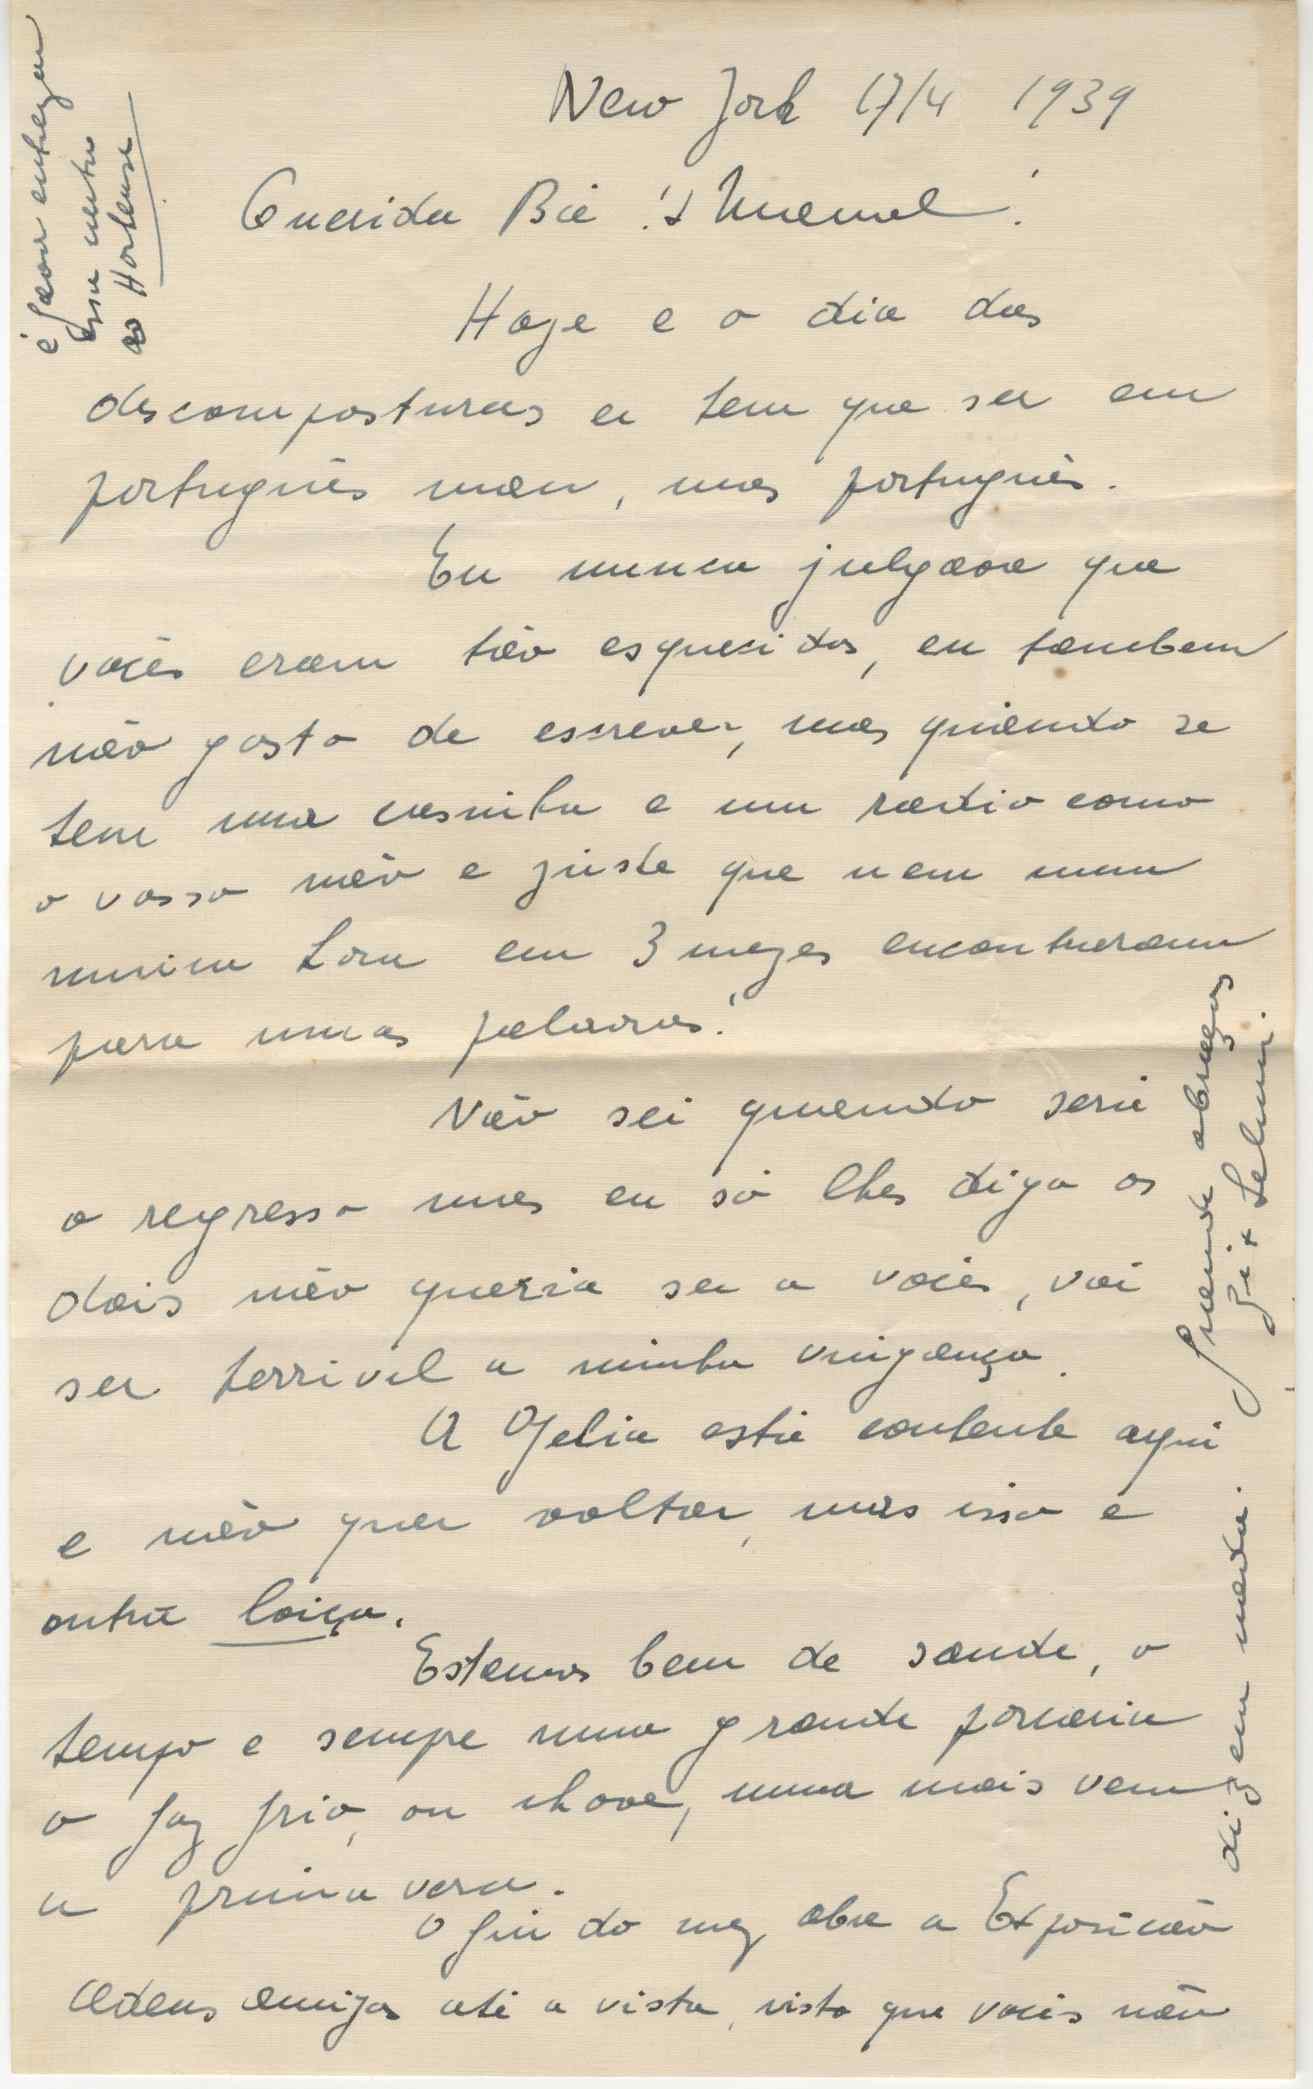 New York 17/4 1939
Querida Bié! & Manuel!
Hoje e o dia das
descomposturas er tem que ser em
português mau, mas português.
Eu nunca julgava que
vocês eram tão esquecidos, eu tambem
não gosto de escrever, mas quando se
tem uma casinha e um radio como
o vosso não e justo que nem numa
unica hora em 3 mezes encontraram
para umas palavras!
Não sei quando será
o regresso mas eu só lhes digo os
dois não queria ser a vocês, vai
ser terrivel a minha vingança.
A está contente aqui
e não quer voltar, mas isso é
outra loiça.
Estamos bem de saude, o
tempo e sempre uma grande porcaria
o faz frio, ou chove, nunca mais vem
a primavera.
O fim do mez abre a Exposicão
Adeus amigos até a vista, visto que vocês não
dizem nada. Grande abraços
é favor entregar
essa carta
ao Hortense